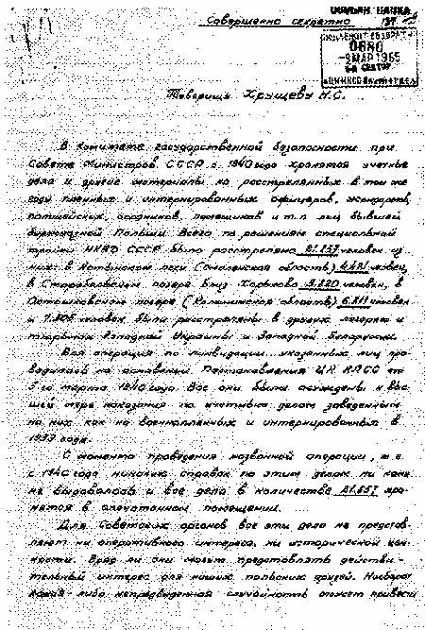 Совершенно секретно
0680
-9 МАР 1965
Товарищу Хрущеву Н.С.
В Комитете государственной безопасности при
Совете Министров СССР с 1940 года хранятся учетные
дела и другие материалы на расстрелянных в том же
году пленных и интернированных офицеров, жандармов,
полицейских, осадников, помещиков и т.п. лиц бывшей
буржуазной Польши. Всего по решениям специальной
тройки НКВД СССР было расстреляно 21.857 человек, из
них: в Катынском лесу (Смоленская область) 4.421 человек,
в Старобельском лагере близ Харькова 3.820 человек, в
Осташковском лагере (Калининская область) 6.311 человек
и 7.305 человек были расстреляны в других лагерях и
тюрьмах Западной Украины и Западной Белоруссии.
Вся операция по ликвидации указанных лиц про-
водилась на основании Постановления ЦК КПСС от
5-го марта 1940 года. Все они были осуждены к выс-
шей мере наказания по учетным делам, заведенным
на них как на военнопленных и интернированных в
1939 году.
С момента проведения названной операции, т.е.
с 1940 года, никаких справок по этим делам никому
не выдавалось и все дела в количестве 21.857 хра-
нятся в опечатанном помещении.
Для Советских органов все эти дела не представ-
ляют ни оперативного интереса, ни исторической цен-
ности. Вряд ли они могут представлять действи-
тельный интерес для наших польских друзей. Наоборот
какая-либо непредвиденная случайность может привести